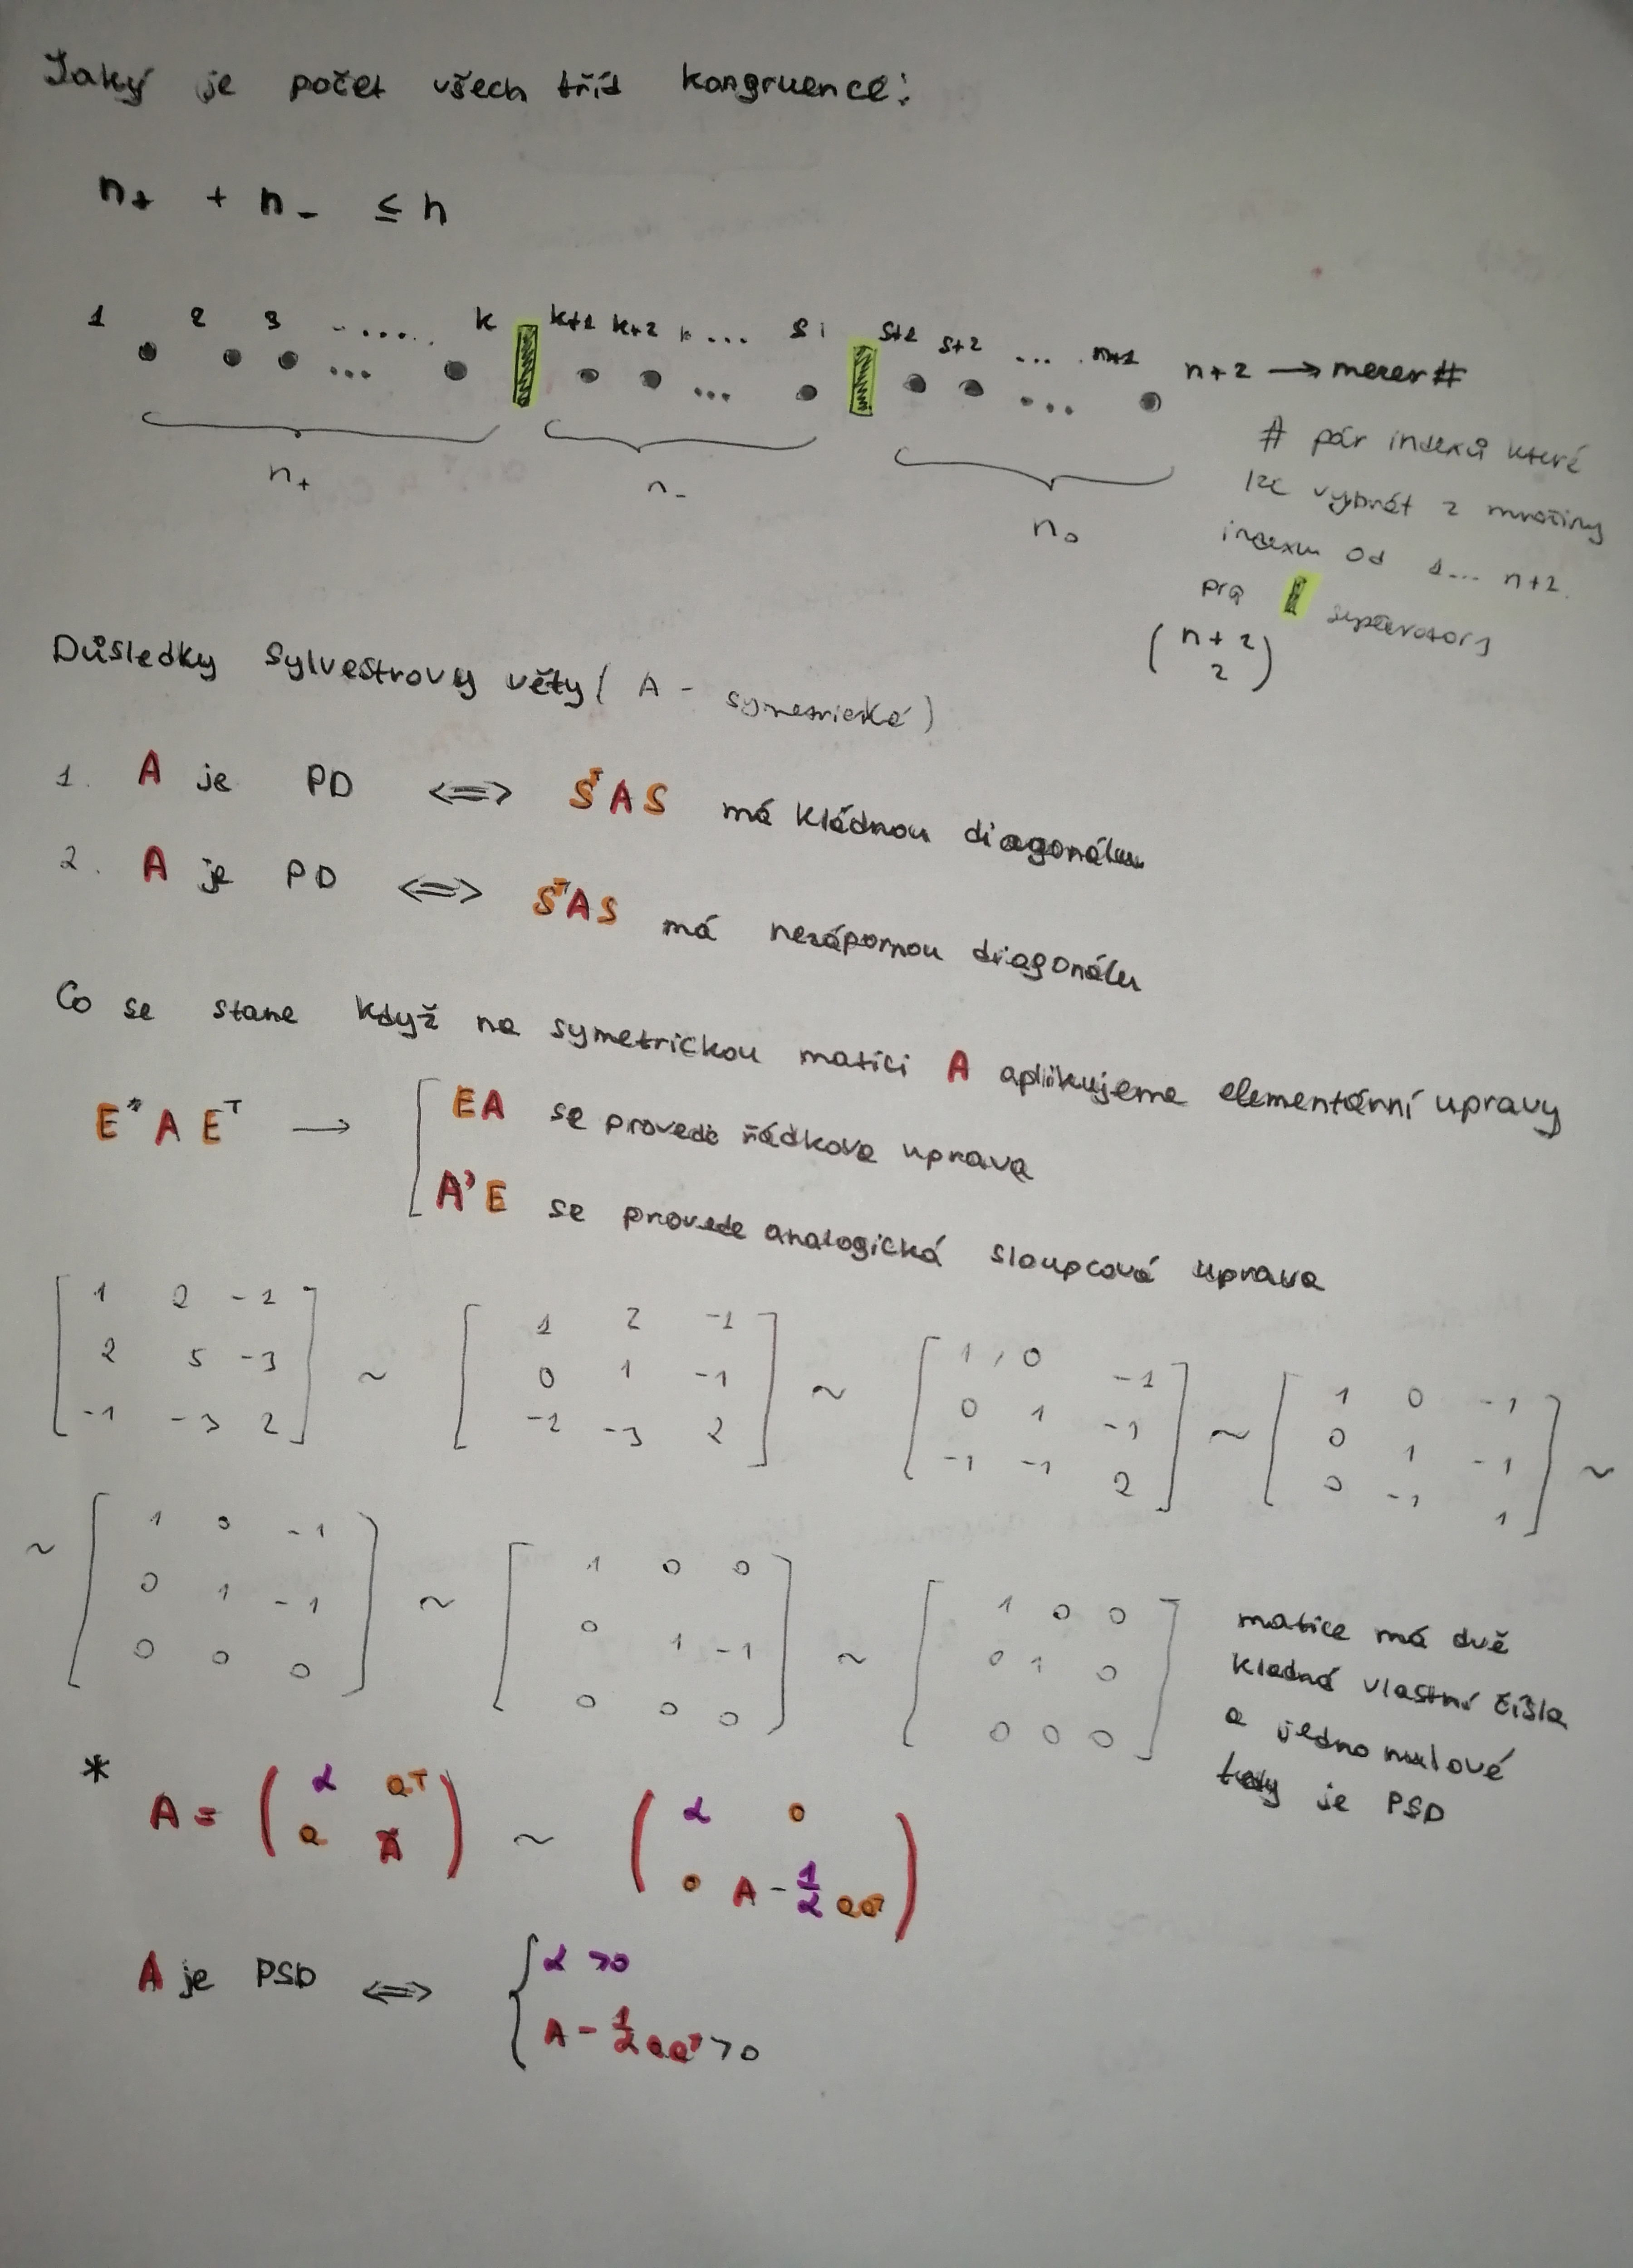 Jaký je počet všech tříd kongruence:
n₊ + n₋ ≤ n
1 2 3 ..... k k+1 k+2 ... s s+1 s+2 ... n+1 n+2 → mezer #
n₊ n₋ n₀
# pár indexů které
lze vybrát z množiny
indexu od 1... n+2.
pro separatory
(n+2 2)
Důsledky Sylvestrovy věty ( A - symetrické )
1. A je PD ⟺ SᵀAS má kládnou diagonálu
2. A je PD ⟺ SᵀAS má nezápornou diagonálu
Co se stane když na symetrickou matici A aplikujeme elementární upravy
E* A Eᵀ → [ EA se provede řádkova uprava
A' E se provede analogická sloupcová uprava
[ 1 2 -1 ; 2 5 -3 ; -1 -3 2 ] ~ [ 1 2 -1 ; 0 1 -1 ; -1 -3 2 ] ~ [ 1 0 -1 ; 0 1 -1 ; -1 -1 2 ] ~ [ 1 0 -1 ; 0 1 -1 ; 0 -1 1 ] ~
~ [ 1 0 -1 ; 0 1 -1 ; 0 0 0 ] ~ [ 1 0 0 ; 0 1 -1 ; 0 0 0 ] ~ [ 1 0 0 ; 0 1 0 ; 0 0 0 ]
matice má dvě
kladná vlastní čísla
a jedno nulové
tedy je PSD
* A = ( α aᵀ ; a Ã ) ~ ( α 0 ; 0 A - 1/α aaᵀ )
A je PSD ⟺ { α >0
A - 1/α aaᵀ >0